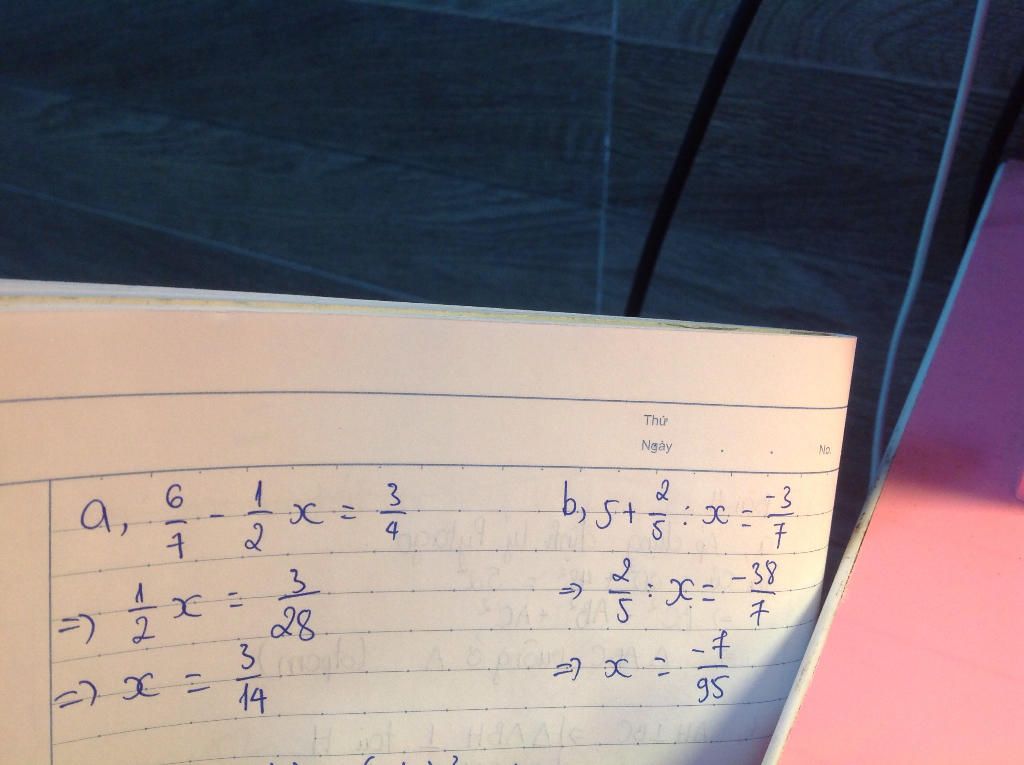 Thứ
Ngày . . No.
a, 6/7 - 1/2 x = 3/4
=> 1/2 x = 3/28
=> x = 3/14
b, 5 + 2/5 : x = -3/7
=> 2/5 : x = -38/7
=> x = -7/95